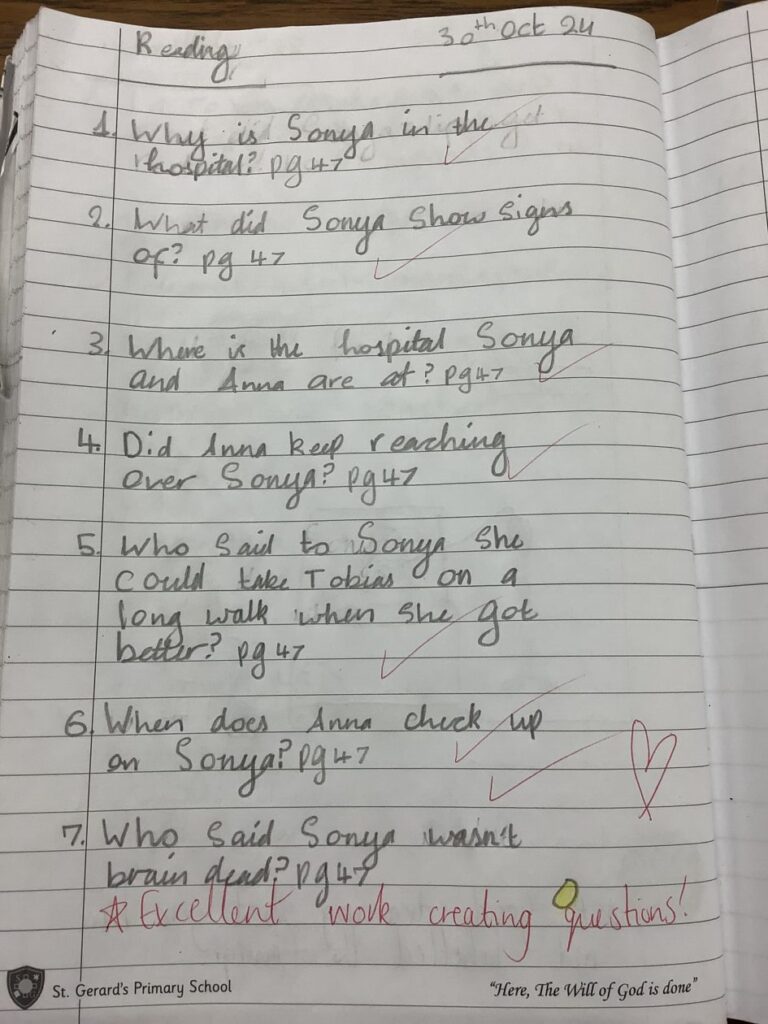 Reading 30th Oct 24
1. Why is Sonya in the
hospital? pg 47
2. What did Sonya show signs
of? pg 47
3. Where is the hospital Sonya
and Anna are at? pg 47
4. Did Anna keep reaching
over Sonya? pg 47
5. Who said to Sonya she
could take Tobias on a
long walk when she got
better? pg 47
6. When does Anna check up
on Sonya? pg 47
7. Who said Sonya wasn't
brain dead? pg 47
* Excellent work creating questions!
St. Gerard's Primary School "Here, The Will of God is done"